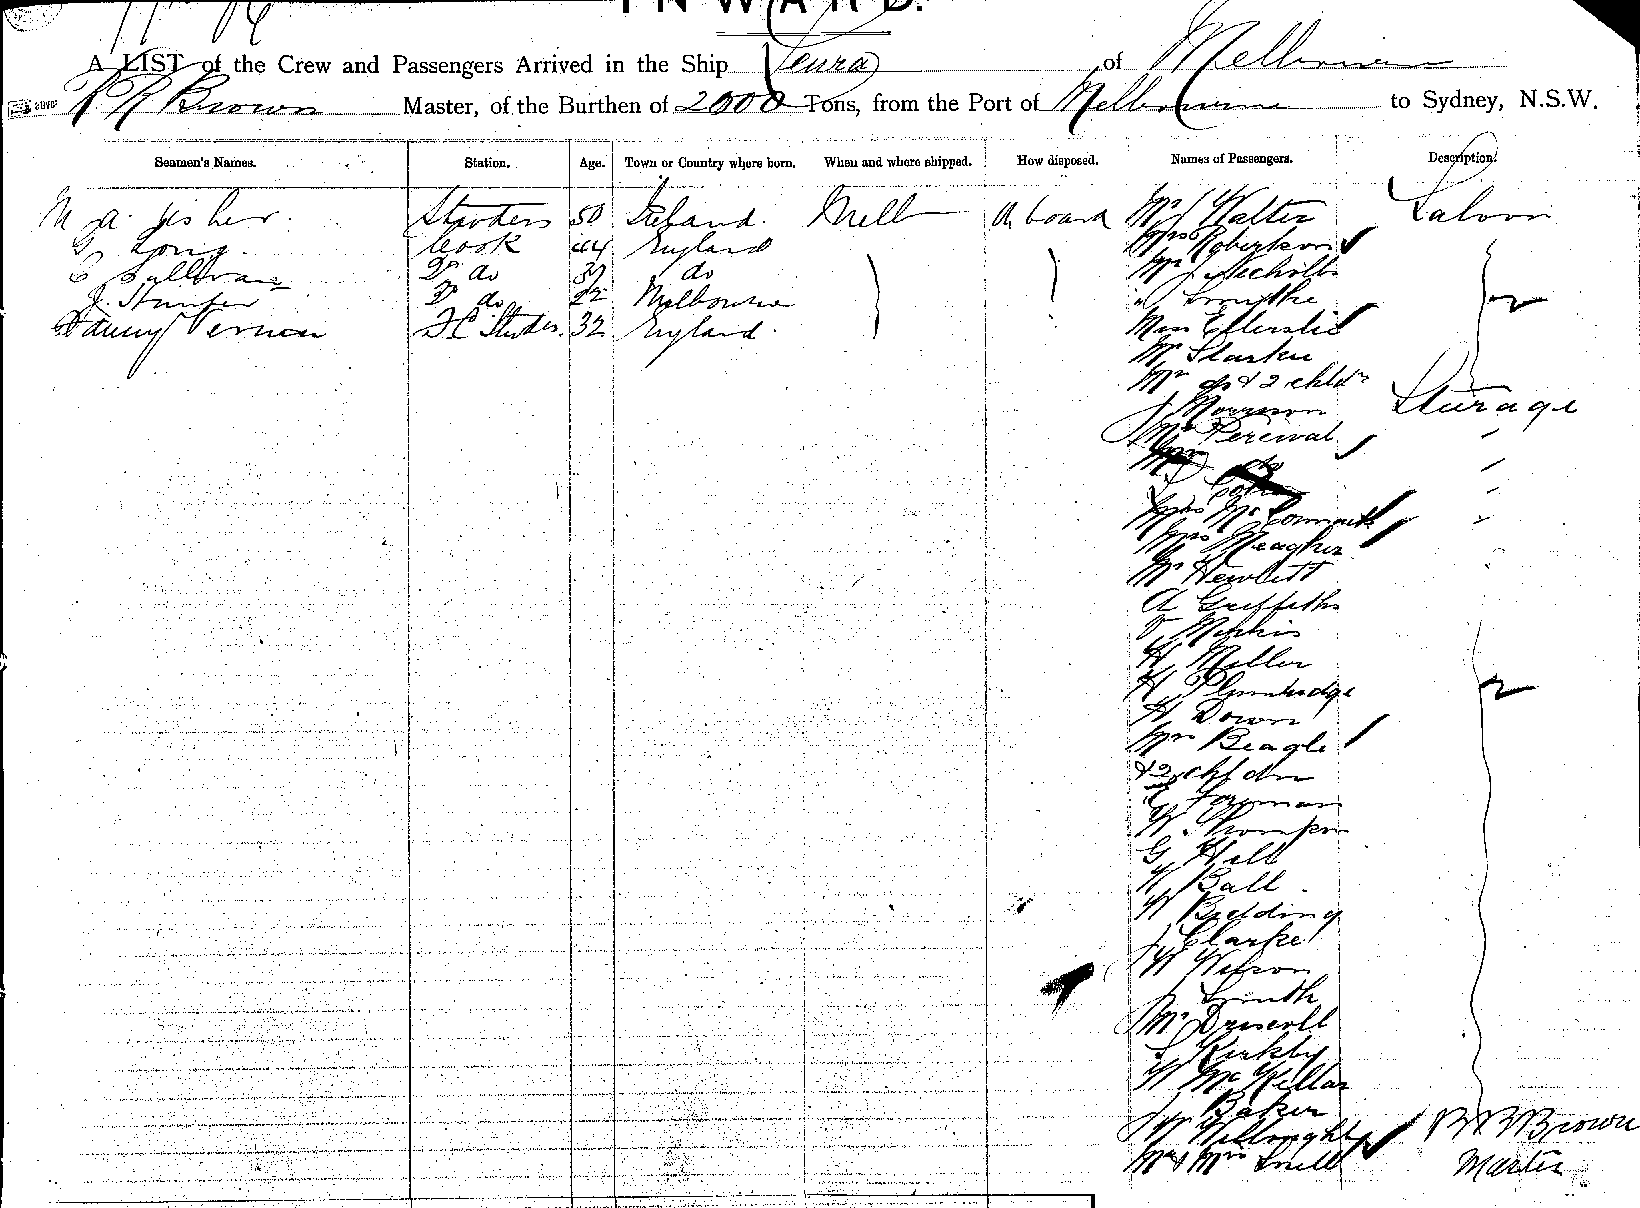 INWARD.
A LIST of the Crew and Passengers Arrived in the Ship Peura of Melbourne
R R Brown Master, of the Burthen of 2000 Tons, from the Port of Melbourne to Sydney, N.S.W.
Seamen's Names. Station. Age. Town or Country where born. When and where shipped. How disposed. Names of Passengers. Description.
M. A. Fisher. Stewdess 50 Ireland. Melb On board Mr J Walter Saloon
G Long Cook 44 England Mrs Robertson
C Sullivan Do do do Mr J Nicholls
J. Hunter Do do 22 Melbourne Smythe
Vernon 32 England. Miss Ellerslie
Mr Starkie
Mrs do & 2 chldn
J Morrison Steerage
Mr Percival
do
Mrs McCormack
Mrs Meagher
Mr Hewlett
A Griffiths
H Miller
H Plumbridge
H Down
Mrs Beagle
& 2 children
Foreman
W. Thompson
G Hill
W Ball
W Bedding
J Clarke
W Wilson
Smith
Mr Driscoll
S Kirkby
W McKellar
J Baker
W Willoughby R R Brown
Mr & Mrs Snell Master